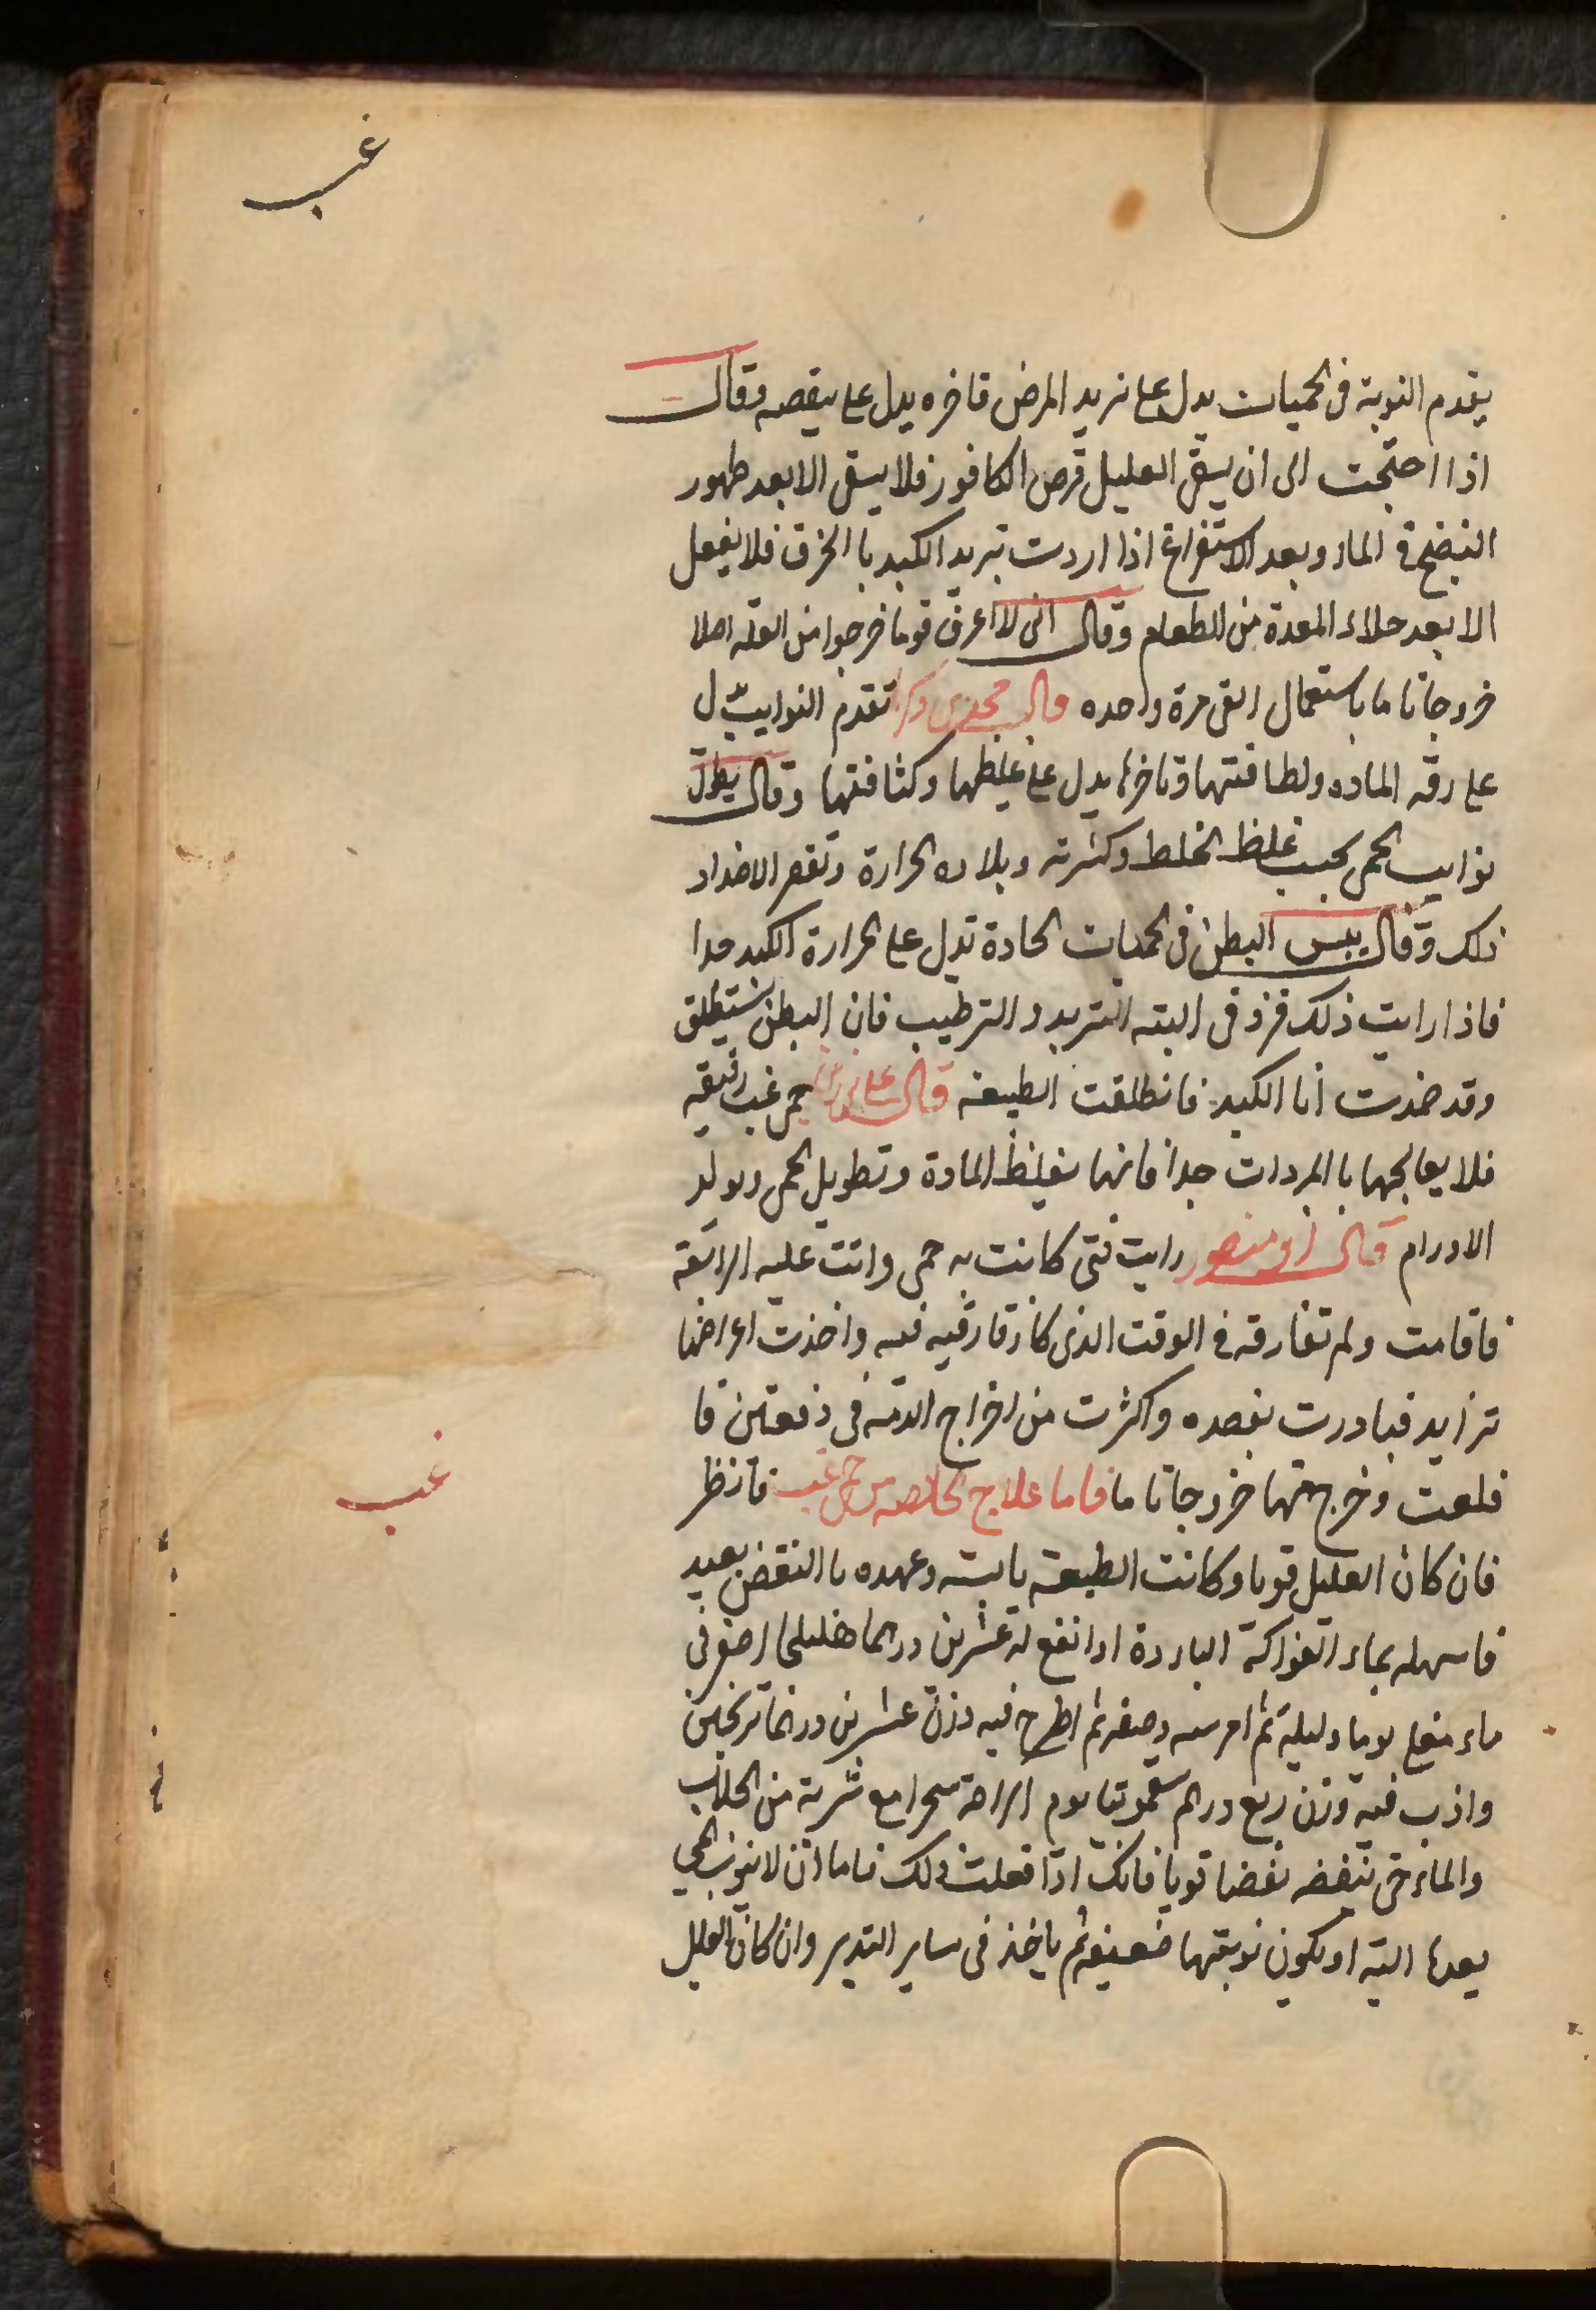 غب
يقدم النوبة فى الحميات يدل على تزيد المرض وتاخره يدل على ينقصه وقال
اذا احتجت الى ان يسقى العليل قرص الكافور فلا يسقى الا بعد ظهور
النضج فى الماء وبعد الاستفراغ اذا اردت تبريد الكبد با الخرق فلا يفعل
الا بعد خلاء المعدة من الطعام وقال انى لا اعرف قوما خرجوا من العلة اصلا
خروجا تاما باستعمال القى مرة واحده قال محمد بن زكريا تقدم النوايب يدل
على رقه الماده ولطافتها وتاخرها يدل على غلظها وكثافتها وقال يطول
نوايب الحمى بحسب غلظ الخلط وكثرته وبلاده الحرارة وتقصر الاضداد
ذلك وقال يبس البطن فى الحميات الحادة تدل على الحرارة الكبد جدا
فاذا رايت ذلك فزد فى البته التبريد والترطيب فان البطن يستطلق
وقد ضمدت انا الكبد فانطلقت الطبيعة قال على حمى غب رقيقه
فلا يعالجها با المبردات جدا فانها تغلظ المادة وتطويل الحمى ويولد
الاورام قال ابو منصور رايت فتى كانت به حمى واتت عليه الرابعة
فاقامت ولم تفارقه فى الوقت الذى كان تفارقه فيه واخذت اعراضها
تزايد فبادرت بفصده واكثرت من اخراج الدم فى دفعتين فا
فلعت وخرج منها خروجا تاما فاما علاج الخالصه من حمى غب فانظر
غب
فان كان العليل قويا وكانت الطبيعة يابسه وعهده با النفض بعيد
فاسهله بماء الفواكه الباردة او انقع له عشرين درهما هليلجا اصفر فى
ماء يوما وليلة ثم امرسه وصفه ثم اطرح فيه وزن عشرين درهما ترنجبين
واذب فيه وزن ربع درهم سقمونيا يوم الراحة سحرا مع شربة من الجلاب
والماء حتى تنفضه نفضا قويا فانك اذا فعلت ذلك فاما ان لا ينوب الحمى
بعدها البته او يكون نوبتها ضعيفة ثم ياخذ فى ساير التدبير وان كان العليل